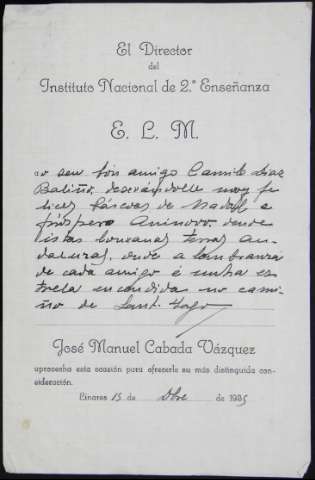 El Director
del
Instituto Nacional de 2.ª Enseñanza
E. L. M.
ao seu bon amigo Camilo Díaz
Baliño, deseándolle moy fe
lices Páscoas de Nadal e
próspero Aninovo, dende
istas louxanas terras an
daluzas, onde a lembranza
de cada amigo é unha es
trela encendida no cami
ño de Sant-Yago
José Manuel Cabada Vázquez
aprovecha esta ocasión para ofrecerle su más distinguida con-
sideración.
Linares 15 de Dbre de 1935